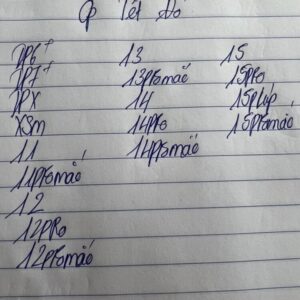 Ốp Tết Đỏ
IP6+
IP7+
IPX
XSm
11
11promax
12
12pro
12promax
13
13promax
14
14pro
14promax
15
15pro
15plus
15promax